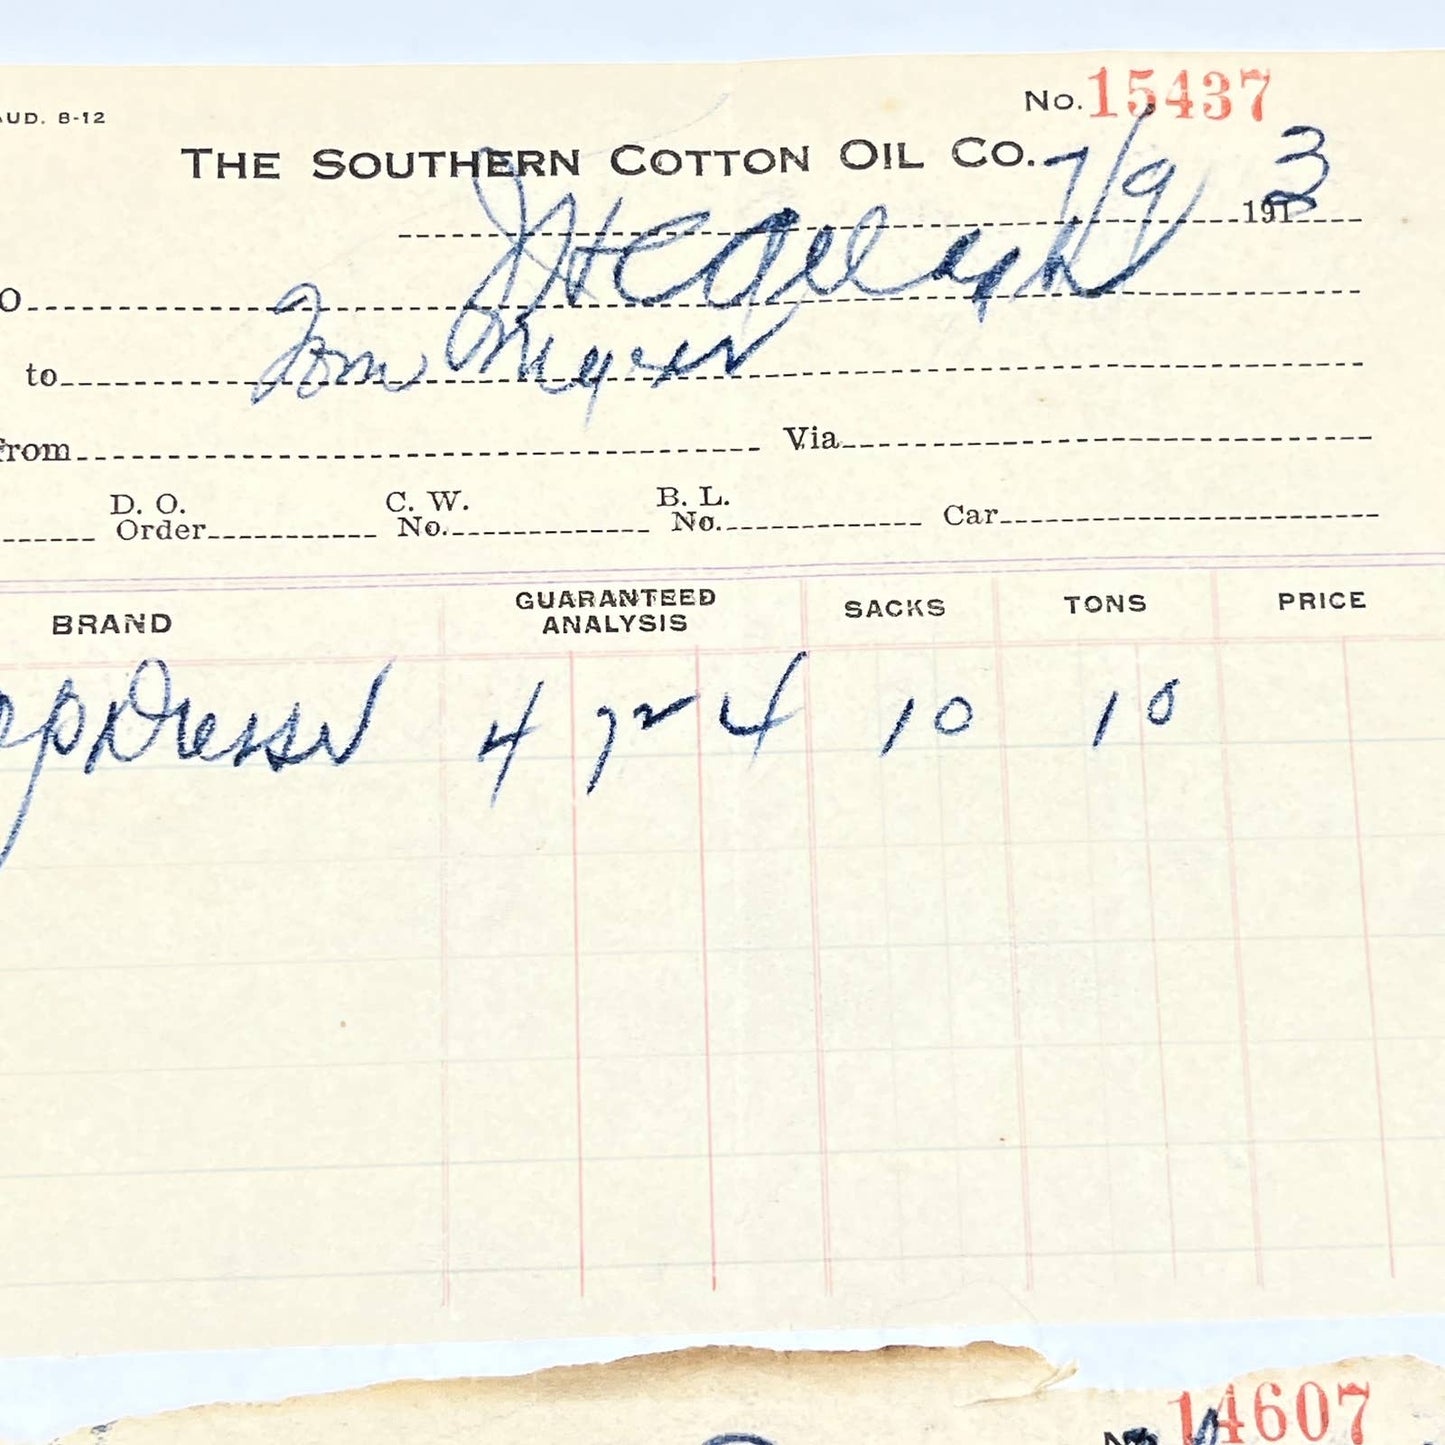 No. 15437
AUD. 8-12
THE SOUTHERN COTTON OIL CO.
7/9 1913
O
to Tom Myers
from Via
D. O. Order C. W. No. B. L. No. Car
BRAND GUARANTEED ANALYSIS SACKS TONS PRICE
Dresser 4 4 10 10
14607